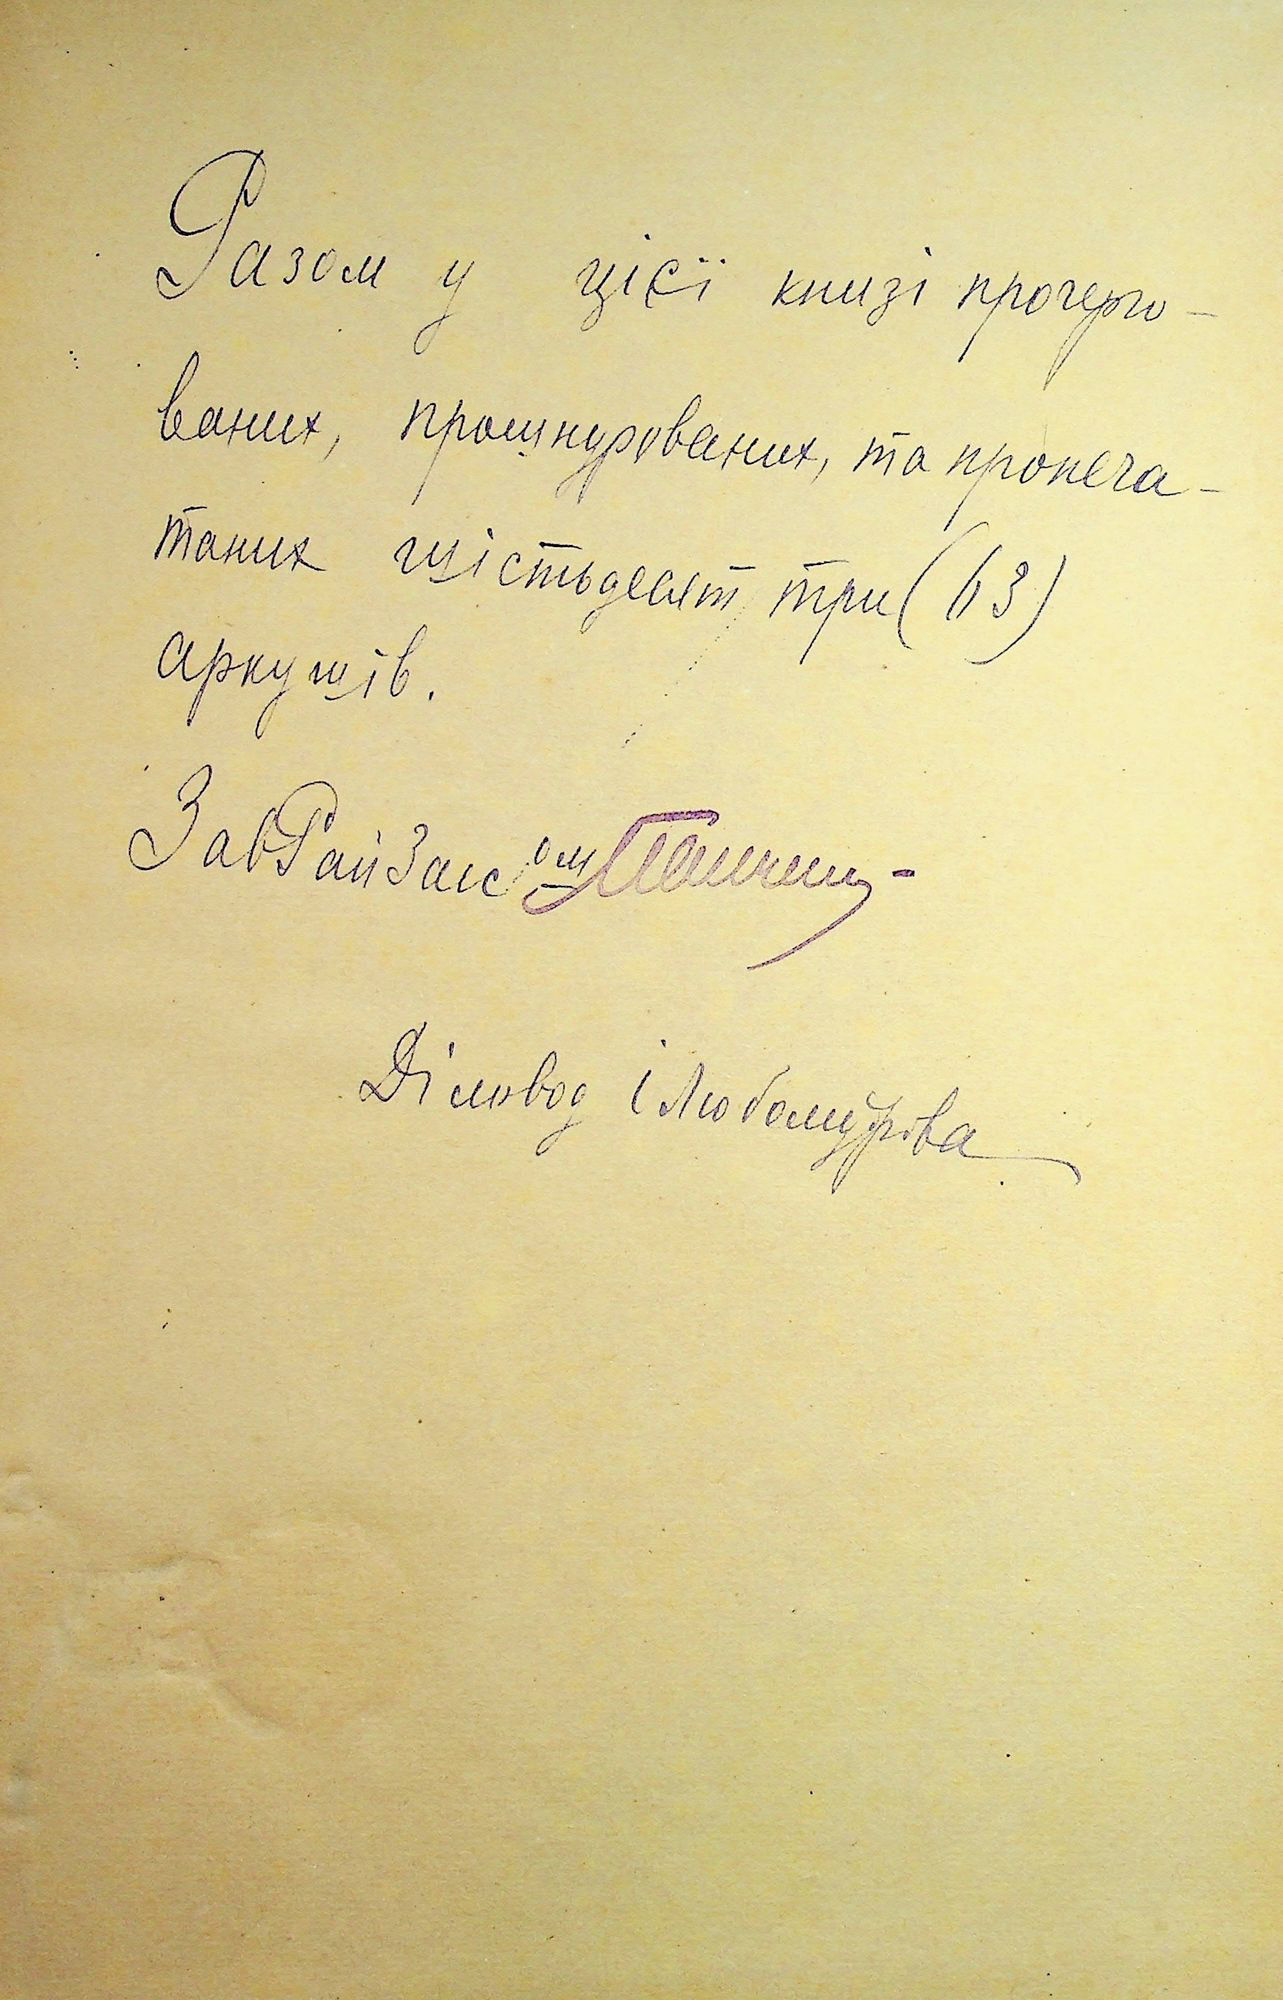 Разом у цієї книзі прочерго-
ваних, прошнурованих, та пропеча-
таних шістьдесят три (63)
аркушів.
ЗавРайЗагс ом
Діловод Любомурова